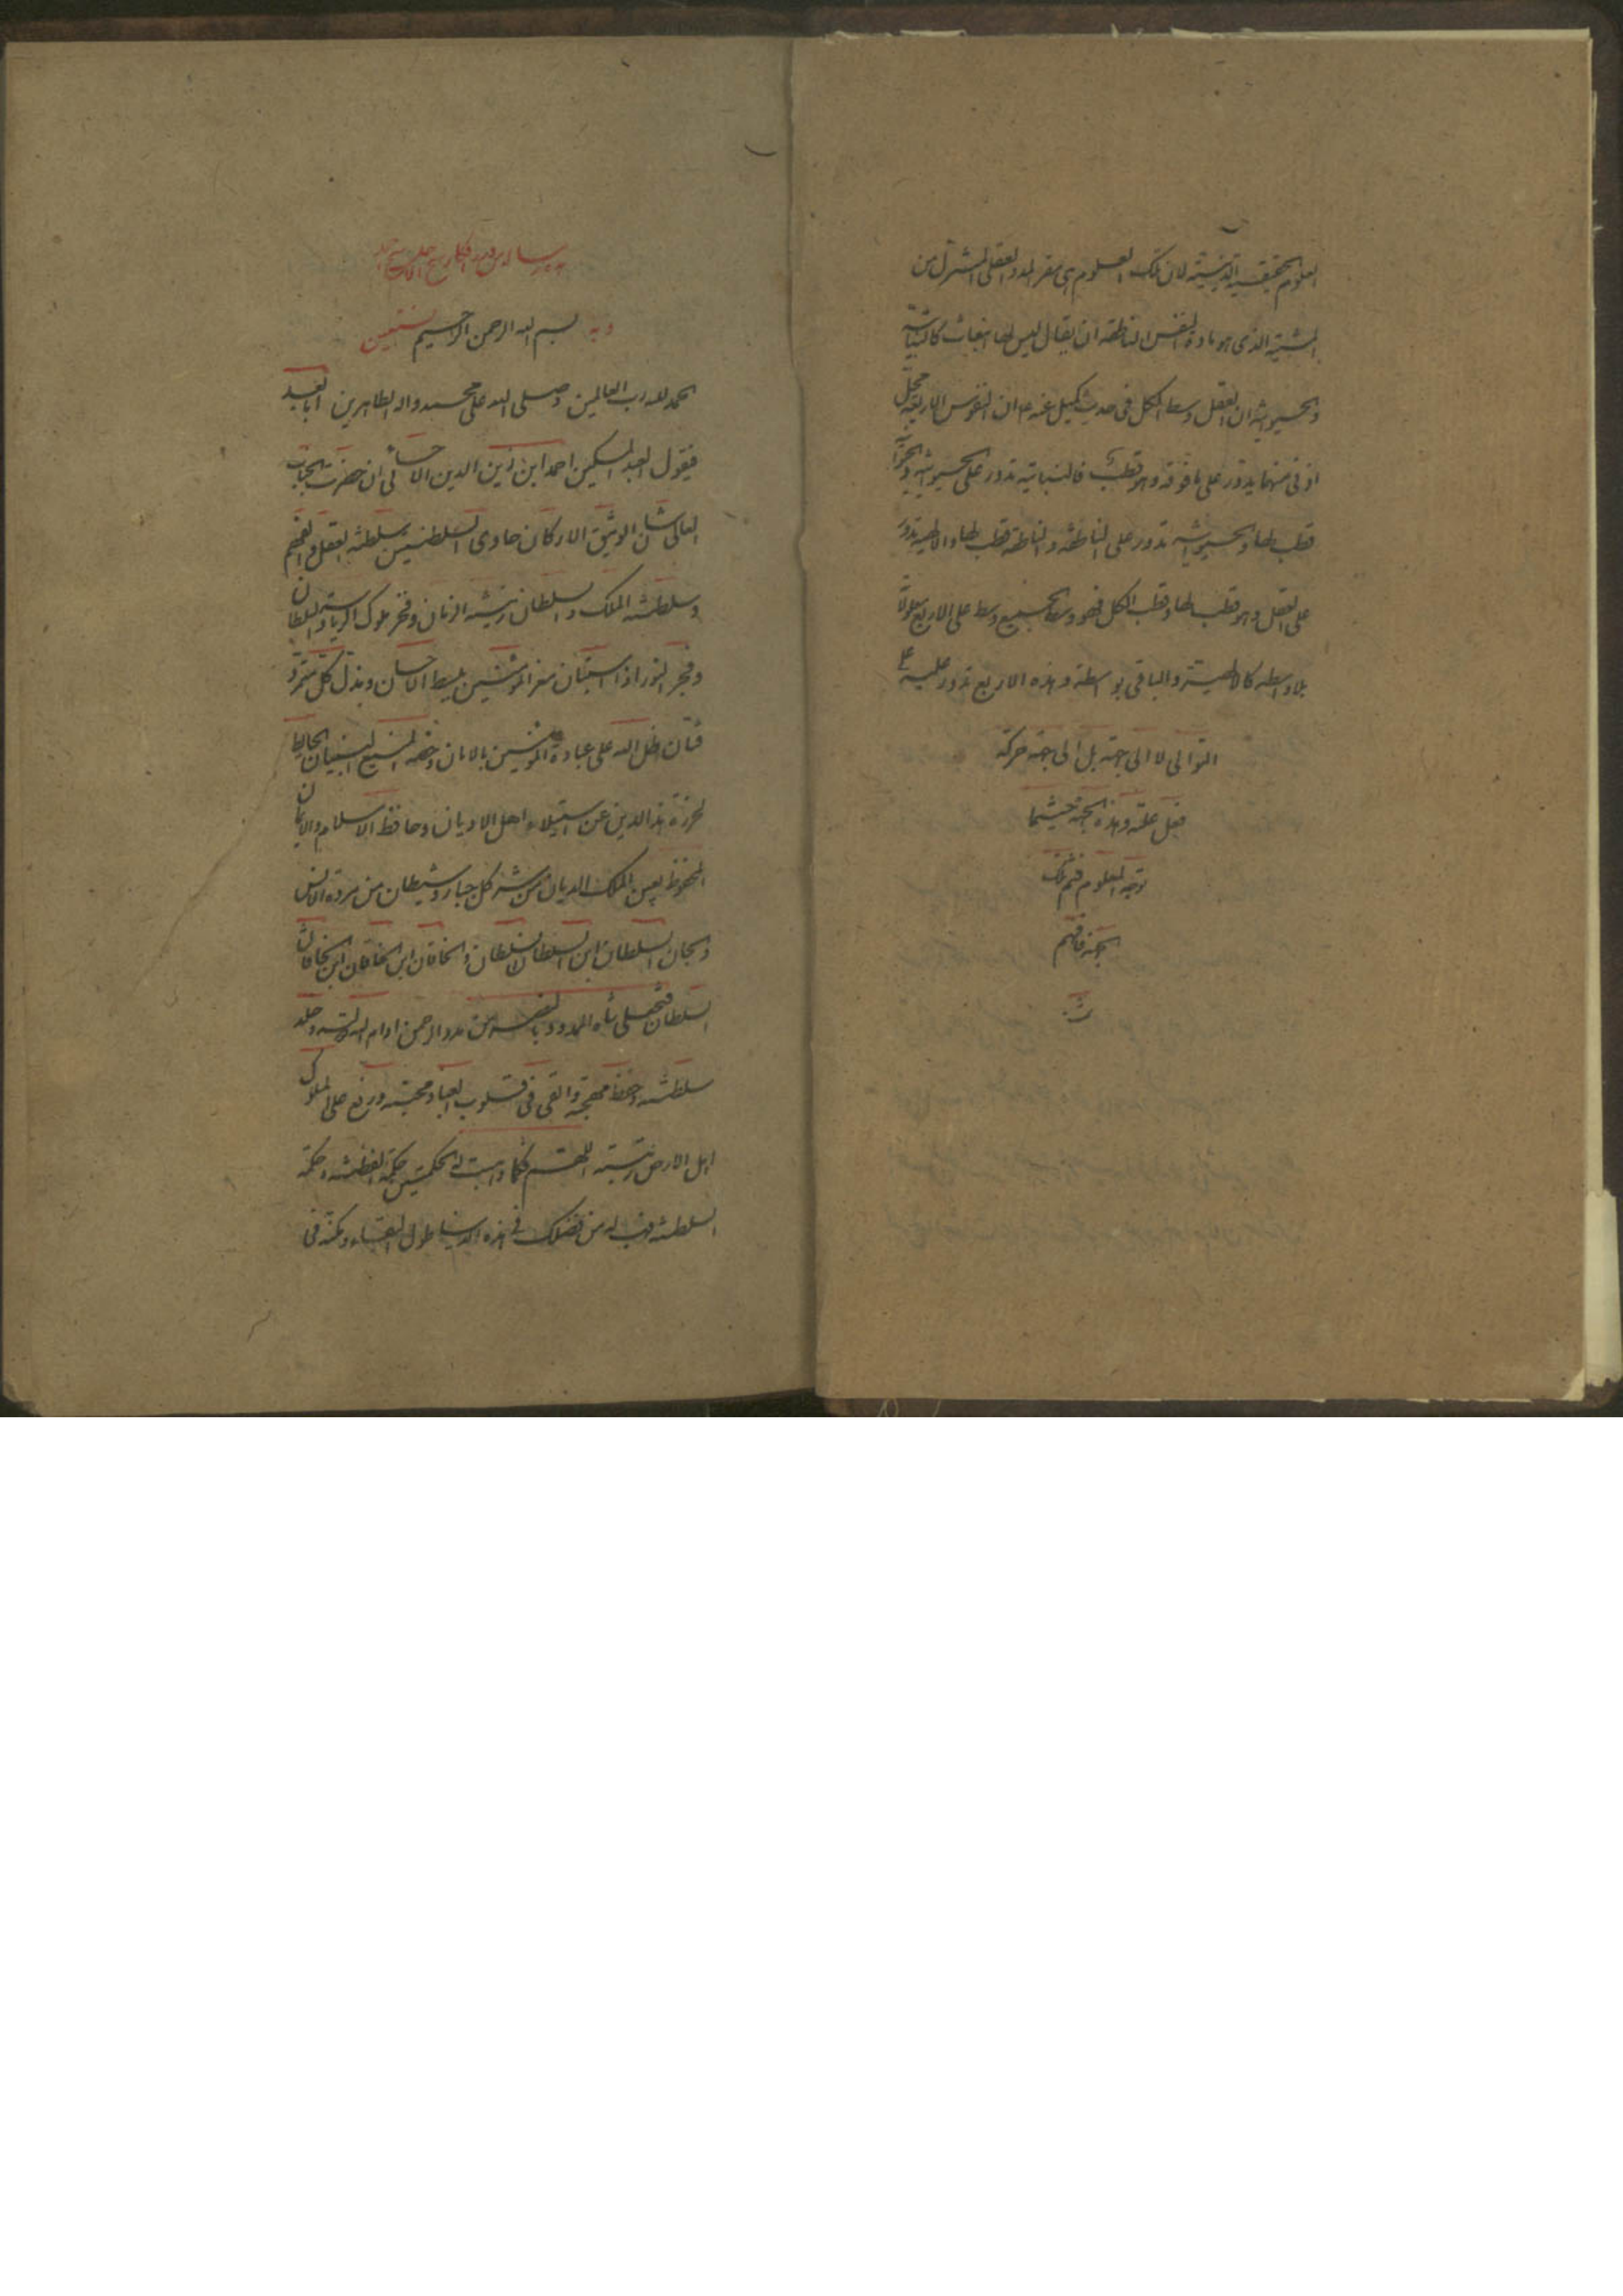 العلوم الحقيقية الدينية لان تلك العلوم هى مقر المدد العقلى المشرق من
المشية الذى هو مادة النفس الناطقة ان يقال ليس لها انبعاث كالنباتية
والحيوانية ان العقل وسط الكل فى حديث كميل عنه ع ان النفوس الاربعة محل
ادنى منهما يدور على ما فوقه وهو قطب فالنباتية تدور على الحيوانية
قطب لها والحيوانية تدور على الناطقة والناطقة قطب لها والالهية تدور
على العقل وهو قطب لها وقطب الكل فهو وسط الجميع وسط على الاربع
بلا واسطه كالالهية والباقى بواسطة وهذه الاربع تدور عليه على
التوالى لا الى جهة بل الى جهة حركة
فعل علته وهذه الجهة حيثما
توجه المعلوم فثم تلك
الجهة فافهم
بسم الله الرحمن الرحيم وبه نستعين
الحمد لله رب العالمين وصلى الله على محمد واله الطاهرين اما بعد
فيقول العبد المسكين احمد ابن زين الدين الاحسائى ان حضرت الجناب
العالى الشان الوثيق الاركان حاوى السلطنتين سلطنة العقل والفهم
وسلطنة الملك والسلطان زينة الزمان وفخر ملوك
وفجر النور اذا استبان معز المؤمنين ببسط الاحسان ومذل كل متمرد
فتان ظل الله على عباده المؤمنين بالامان وحصنه المنيع البنيان الحايط
لحوزة هذا الدين عن استيلاء اهل الاديان وحافظ الاسلام والايمان
المحفوظ بعين الملك الديان من شر كل جبار وشيطان من مردة الانس
والجان السلطان ابن السلطان السلطان والخاقان ابن الخاقان ابن الخاقان
السلطان فتحعلى شاه الممدود بالنصر من مدد الرحمن ادام الله دولته وخلد
سلطنته وحفظ مهجته والقى فى قلوب العباد محبته ورفع على الملوك
اهل الارض رتبته اللهم فكما وهبت له الحكمتين حكمة الفطنة وحكمة
السلطنة فهب له من فضلك فى هذه الدنيا طول البقاء ومكنه فى